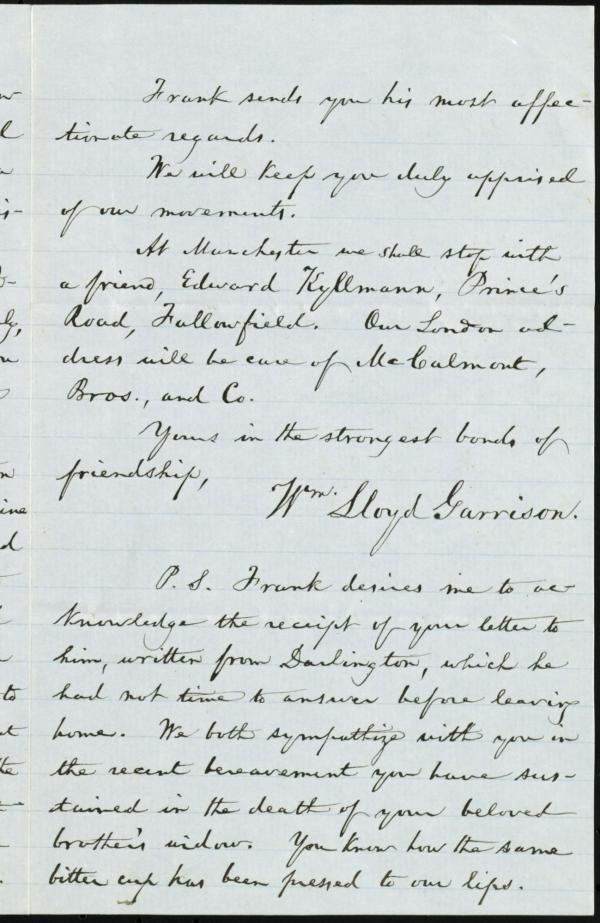 Frank sends you his most affec-
tionate regards.
We will keep you duly apprised
of our movements.
At Manchester we shall stop with
a friend, Edward Kyllmann, Prince's
Road, Fallowfield. Our London ad-
dress will be care of McCalmont,
Bros., and Co.
Yours in the strongest bonds of
friendship,
Wm. Lloyd Garrison.
P. S. Frank desires me to ac-
knowledge the receipt of your letter to
him, written from Darlington, which he
had not time to answer before leaving
home. We both sympathize with you in
the recent bereavement you have sus-
tained in the death of your beloved
brother's widow. You know how the same
bitter cup has been pressed to our lips.